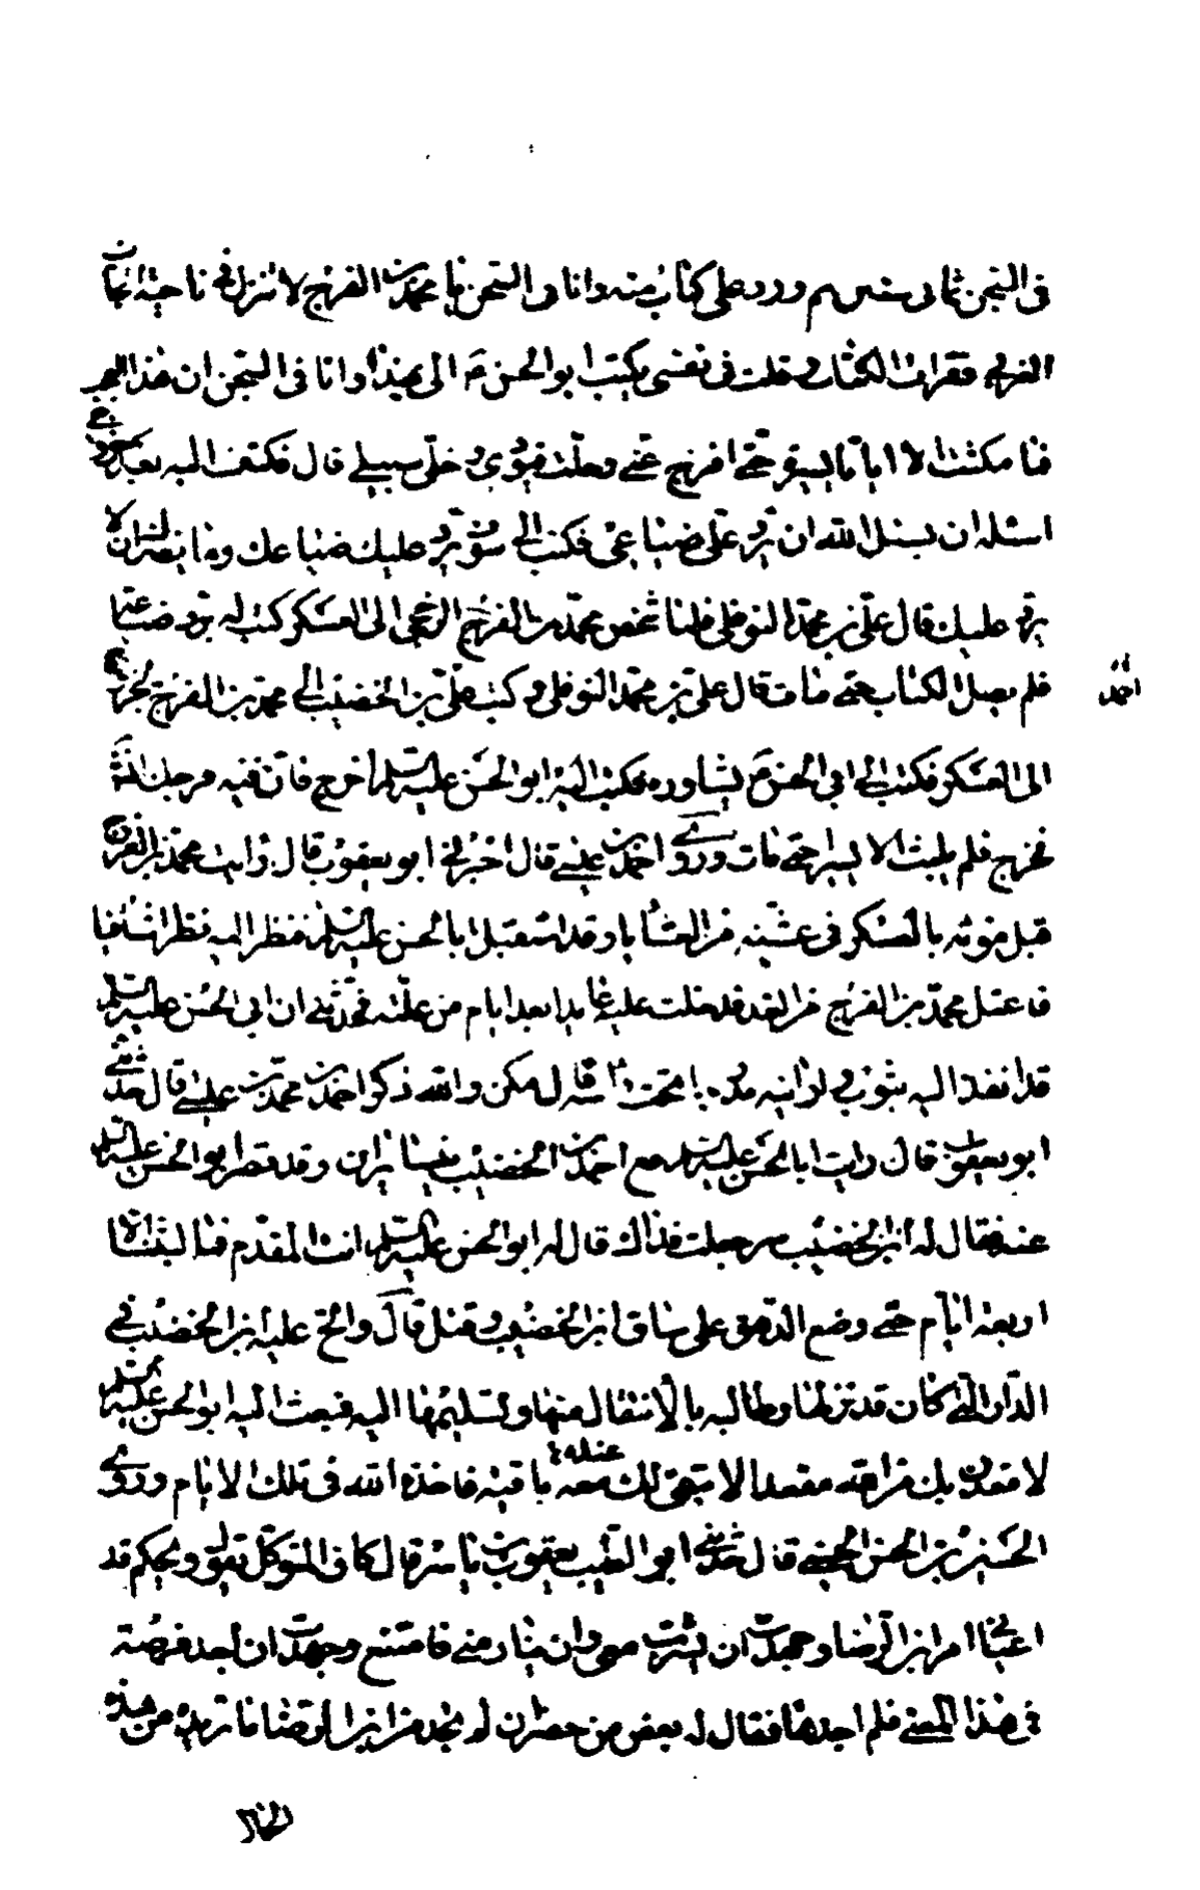 في السجن ثماني سنين ثم ورد علي كتاب منه وانا في السجن يا محمد بن الفرج لا تنزل في ناحية الجانب
الغربي فقرات الكتاب وقلت في نفسي يكتب ابو الحسن ع الي بهذا وانا في السجن ان هذا لعجب
فما مكثت الا اياما يسيرة حتى افرج عني وحلت قيودي وخلي سبيلي قال فكتبت اليه بعد خروجي
اسئله ان يسئل الله ان يرد علي ضياعي فكتب الي سوف ترد عليك ضياعك وما يضرك ان لا
ترد عليك قال علي بن محمد النوفلي فلما شخص محمد بن الفرج الرخجي الى العسكر كتب له برد ضياعه
فلم يصل الكتاب حتى مات قال علي بن محمد النوفلي وكتب علي بن الخصيب الى محمد بن الفرج بالخروج
احمد
الى العسكر فكتب الى ابي الحسن ع يشاوره فكتب اليه ابو الحسن عليه السلم اخرج فان فيه فرجك انشا
فخرج فلم يلبث الا يسيرا حتى مات وروى احمد بن عيسى قال اخبرني ابو يعقوب قال رايت محمد بن الفرج
قبل موته بالعسكر في عشية من العشايا وقد استقبل ابا الحسن عليه السلم فنظر اليه نظرا شافيا
فاعتل محمد بن الفرج من الغد فدخلت عليه عايدا بعد ايام من علته فحدثني ان ابي الحسن عليه السلم
قد انفذ اليه بثوب وارانيه مدرجا تحت راسه قال فكفن والله ذكر احمد بن محمد بن عيسى قال حدثني
ابو يعقوب قال رايت ابا الحسن عليه السلم مع احمد بن الخصيب يتسايران وقد قصر ابو الحسن عليه السلم
عنه فقال له ابن الخصيب سر جعلت فداك قال له ابو الحسن عليه السلم انت المقدم فما لبثنا الا
اربعة ايام حتى وضع الدهق على ساق ابن الخصيب وقتل قال والح عليه ابن الخصيب في
الدار التي كان قد نزلها وطالبه بالانتقال منها وتسليمها اليه فبعث اليه ابو الحسن عليه السلم
لاقعدن بك من الله مقعدا لا تبقى لك معه باقية فاخذه الله في تلك الايام وروى
الحسين بن الحسن الحسني قال حدثني ابو الطيب يعقوب بن ياسر قال كان المتوكل يقول ويحكم قد
اعياني امر ابن الرضا وجهدت ان يشرب معي وان ينادمني فامتنع وجهدت ان اجد فرصة
في هذا المعنى فلم اجدها فقال له بعض من حضر ان لم تجد من ابن الرضا ما تريده من هذه
الحال